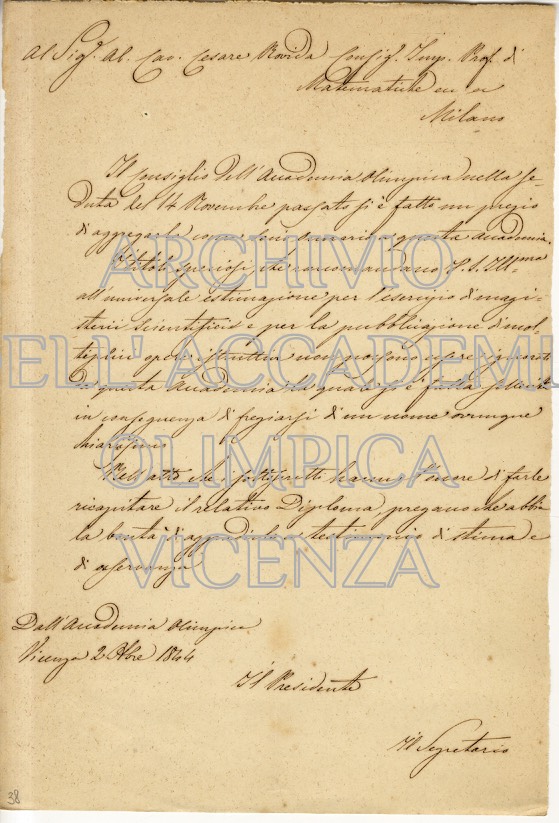 Al Sig.r Ab. Cav. Cesare Rovida Consig. Imp. Prof. di
Matematiche in
Milano
Il Consiglio dell'Accademia Olimpica nella se-
duta del 14 Novembre passato si è fatto un pregio
di aggregarla come socio onorario a questa Accademia.
I titoli speciosi, che raccomandano V. S. Ill.ma
all'universale estimazione per l'esercizio di magi-
sterii scientifici e per la pubblicazione di mol-
teplici opere istruttive non possono essere ignorati
da questa Accademia la quale si è fatta sollecita
in conseguenza di fregiarsi di un nome ovunque
chiarissimo.
Nell'atto che i sottoscritti hanno l'onore di farle
ricapitare il relativo Diploma, pregano che abbia
la bontà di aggradirlo in testimonio di stima e
di osservanza.
Dall'Accademia Olimpica
Vicenza 2 Xbre 1844
Il Presidente
Il Segretario
38
ARCHIVIO
DELL' ACCADEMI
OLIMPICA
VICENZA